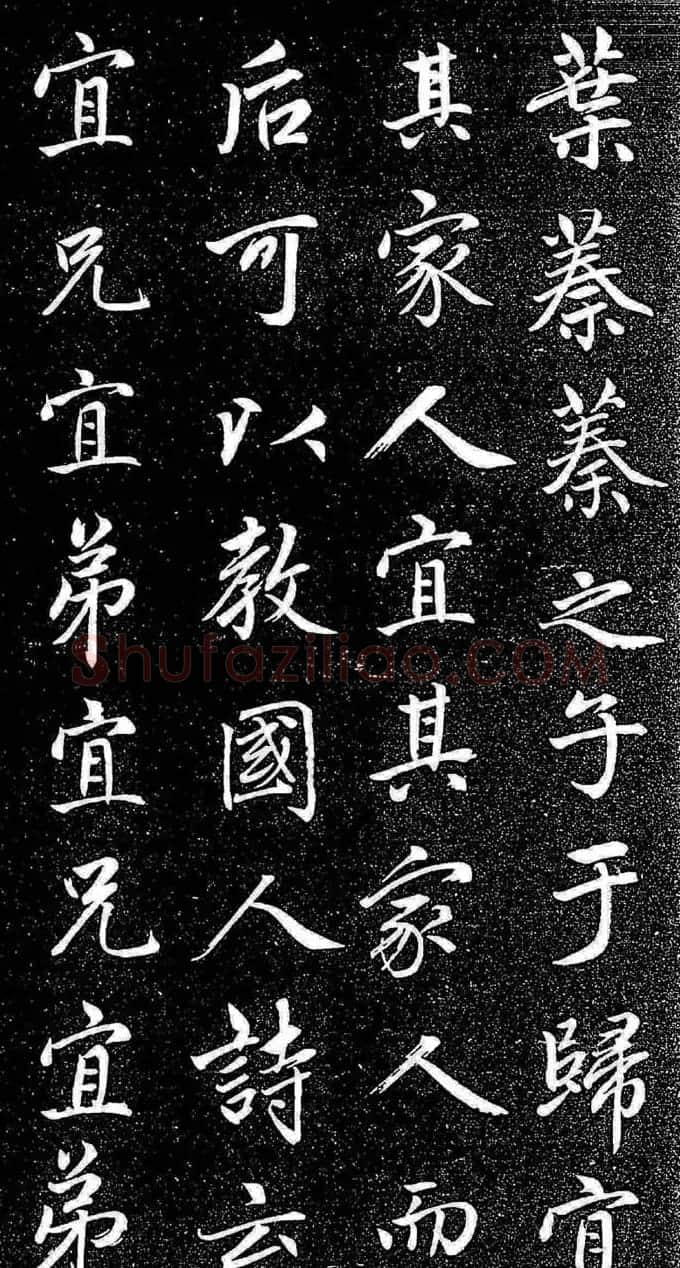 葉蓁蓁之子于歸宜
其家人宜其家人而
后可以教國人詩云
宜兄宜弟宜兄宜弟
Shufaziliao.COM